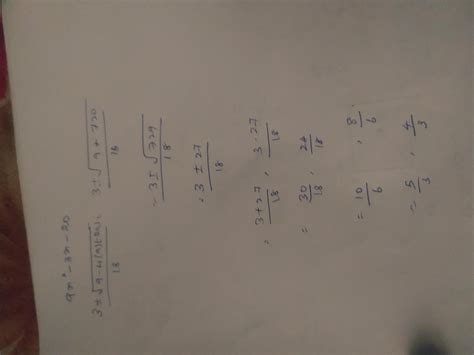 9x² - 3x - 20
3 ± √9-4(9)(-20) / 18 = 3 ± √9+720 / 18
= 3 ± √729 / 18
= 3 ± 27 / 18
= 3+27 / 18 , 3-27 / 18
= 30 / 18 , 24 / 18
= 10 / 6 , 8 / 6
= 5 / 3 , 4 / 3